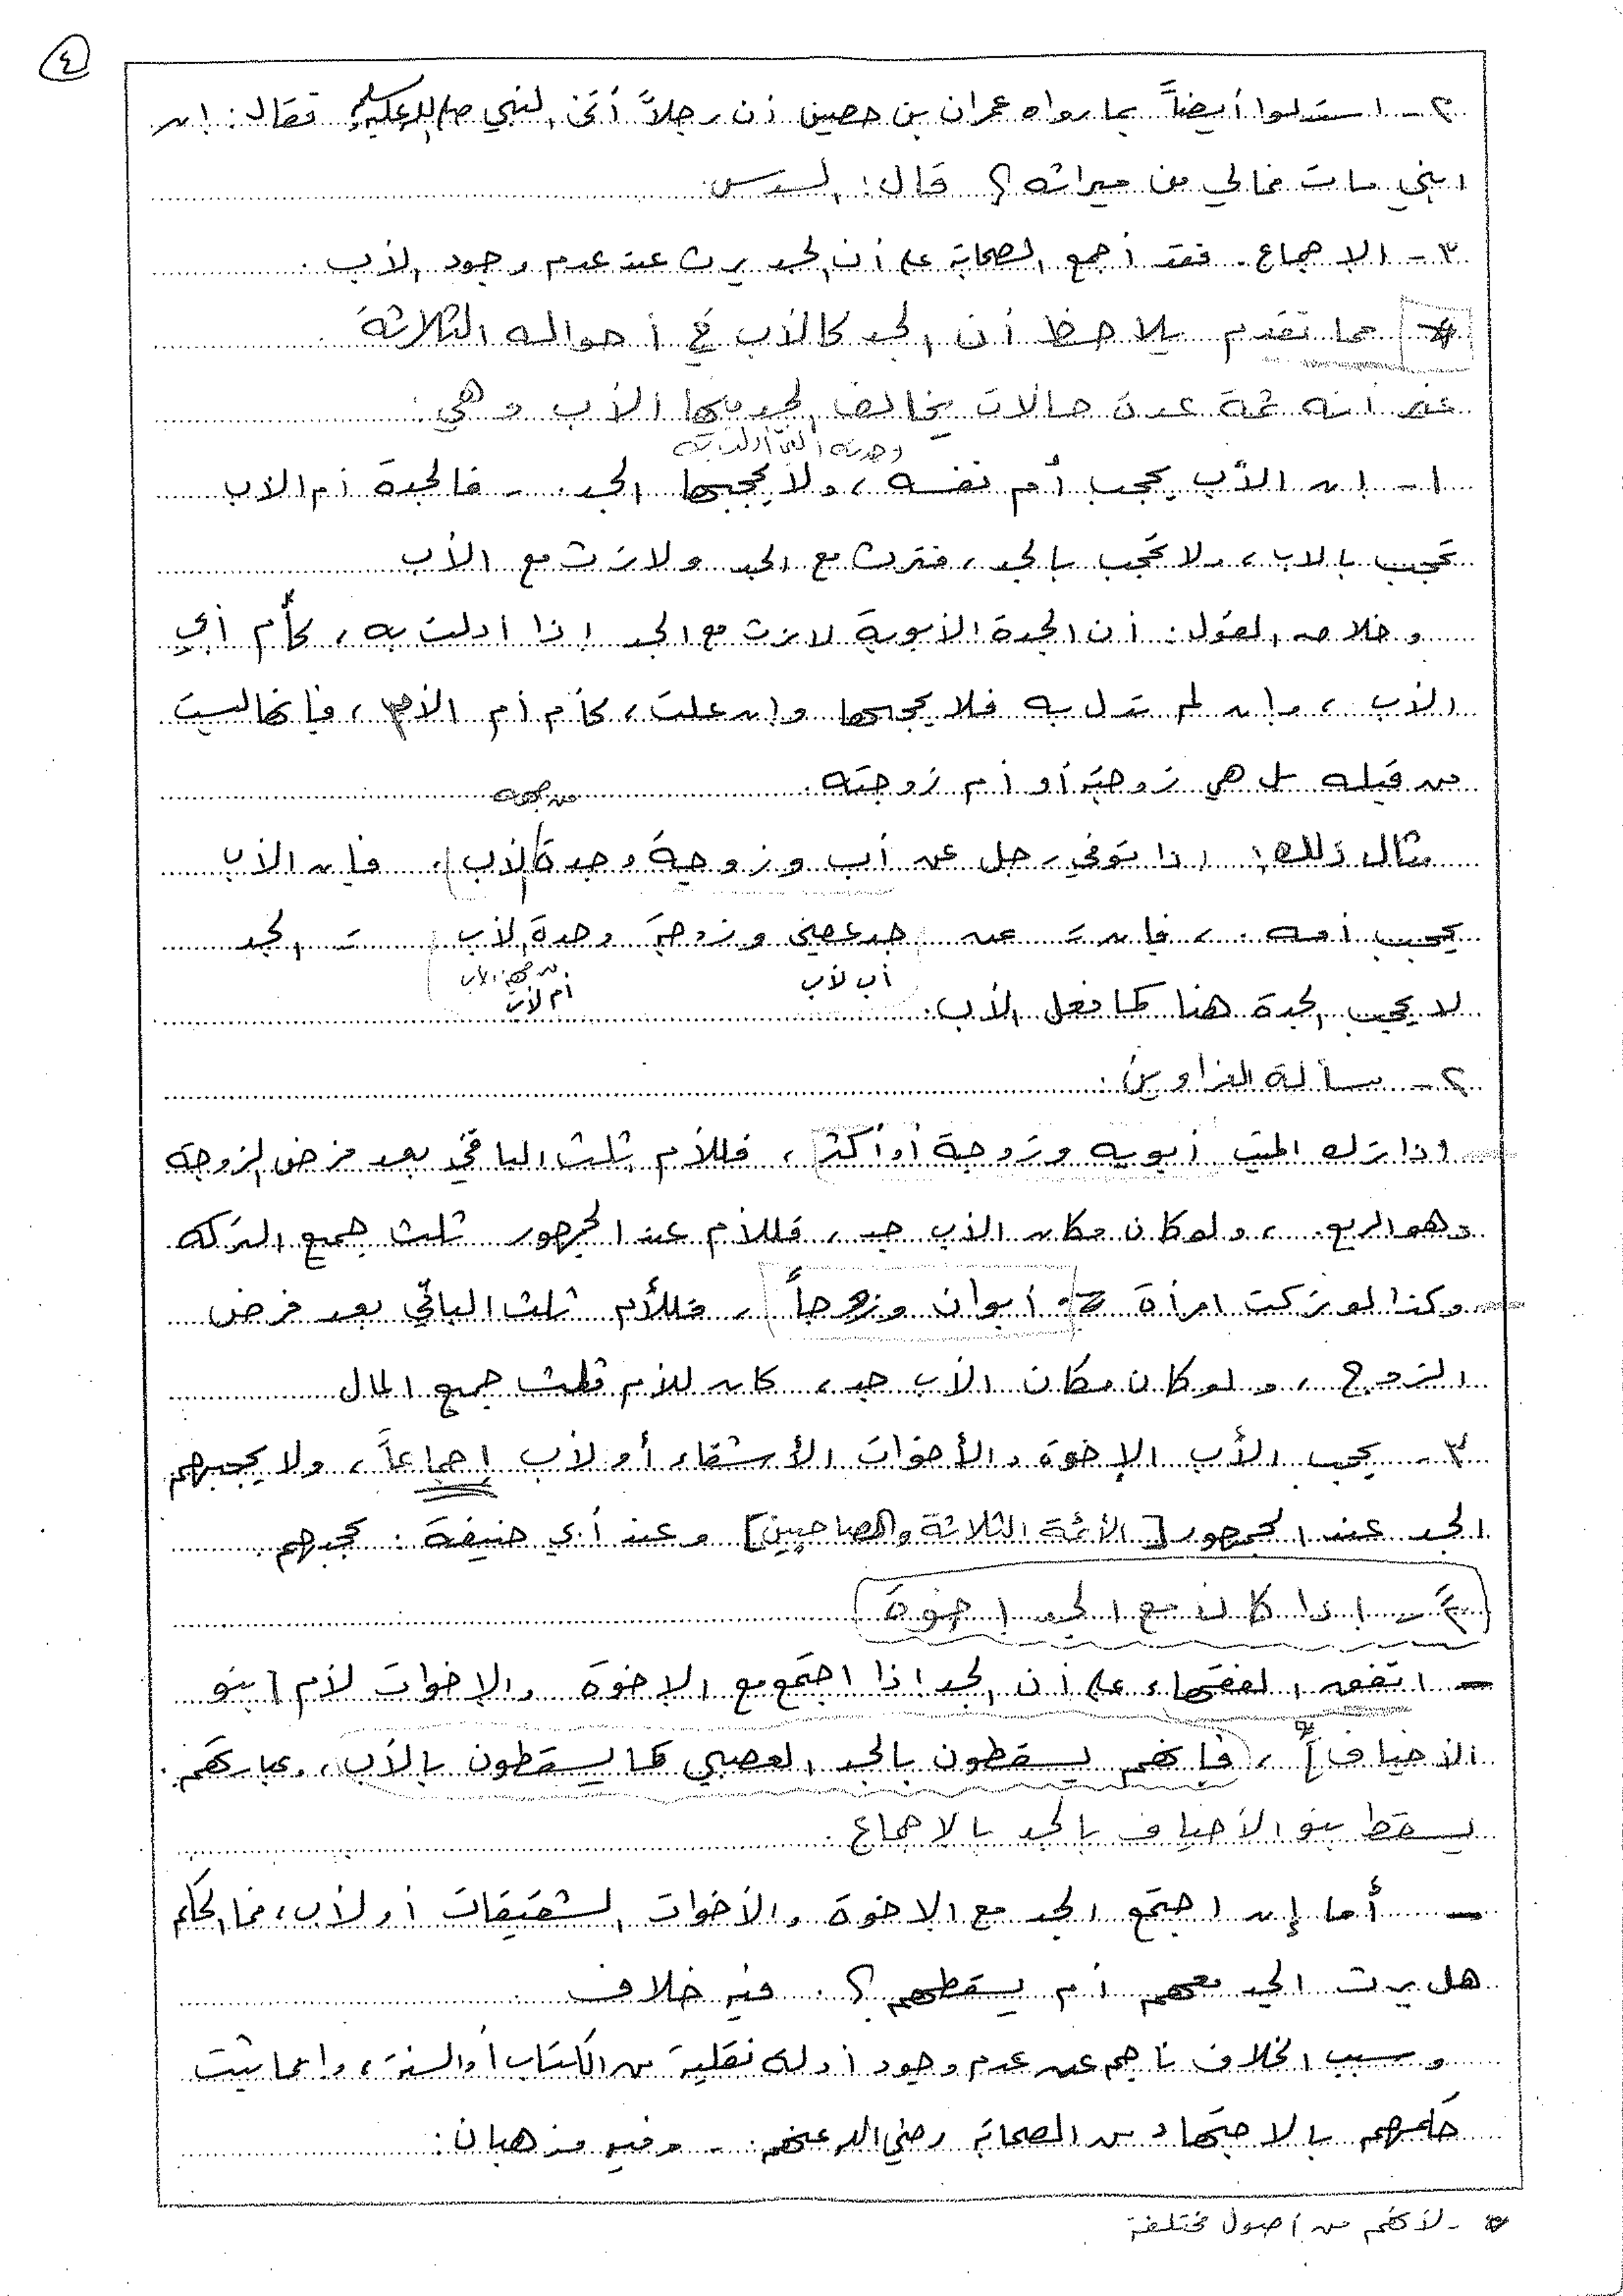 ٤
٢ - استدلوا أيضاً بما رواه عمران بن حصين أن رجلاً أتى النبي صلى الله عليه وسلم فقال: إن
ابني مات فمالي من ميراثه؟ قال: السدس.
٣ - الإجماع. فقد أجمع الصحابة على أن الجد يرث عند عدم وجود الأب.
* مما تقدم يلاحظ أن الجد كالأب في أحواله الثلاثة.
غير أنه ثمة عدة حالات يخالف الجد فيها الأب وهي:
وجدته التي أدلت به
١ - إن الأب يحجب أم نفسه، ولا يحجبها الجد. - فالجدة أم الأب
تحجب بالأب، ولا تحجب بالجد، فترث مع الجد ولا ترث مع الأب
وخلاصه القول: أن الجدة الأبوية لا ترث مع الجد إذا أدلت به، كأم أبي
الأب، وإن لم تدل به فلا يحجبها وإن علت، كأم أم الأب، فإنها ليست
من قبله بل هي زوجته أو أم زوجته.
من جهة
مثال ذلك: إذا توفي رجل عن أب وزوجة وجدة الأب، فإن الأب
يحجب أمه.، فإن ت عن جد عصبي وزوجة وجدة لأب ت الجد
أب لأب من جهة الأب
أم لأب
لا يحجب الجدة هنا كما فعل الأب.
٢ - مسألة الغراوين:
إذا ترك الميت أبويه وزوجة أو أكثر، فللأم ثلث الباقي بعد فرض الزوجة
وهو الربع.، ولو كان مكان الأب جد، فللأم عند الجمهور ثلث جميع التركه
وكذا لو تركت امرأة أبوان وزوجاً، فللأم ثلث الباقي بعد فرض
الزوج، ولو كان مكان الأب جد، كان للأم ثلث جميع المال
٣ - يحجب الأب الإخوة والأخوات الأشقاء أو لأب إجماعاً، ولا يحجبهم
الجد عند الجمهور [الأئمة الثلاثة والصاحبين] وعند أبي حنيفة: يحجبهم.
٣ً - إذا كان مع الجد إخوة
- اتفق الفقهاء على أن الجد إذا اجتمع مع الإخوة والإخوات لأم [بنو
الأخياف]*، فإنهم يسقطون بالجد العصبي كما يسقطون بالأب، عبارتهم:
يسقط بنو الأخياف بالجد بالإجماع.
- أما إن اجتمع الجد مع الإخوة والأخوات الشقيقات أو لأب، فما الحكم
هل يرث الجد معهم أم يسقطهم؟. فيه خلاف
وسبب الخلاف ناجم عن عدم وجود أدلة نقلية من الكتاب أو السنة، وإنما ثبت
حكمهم بالاجتهاد من الصحابة رضي الله عنهم. - وفيه مذهبان:
* - لأنهم من أصول مختلفة